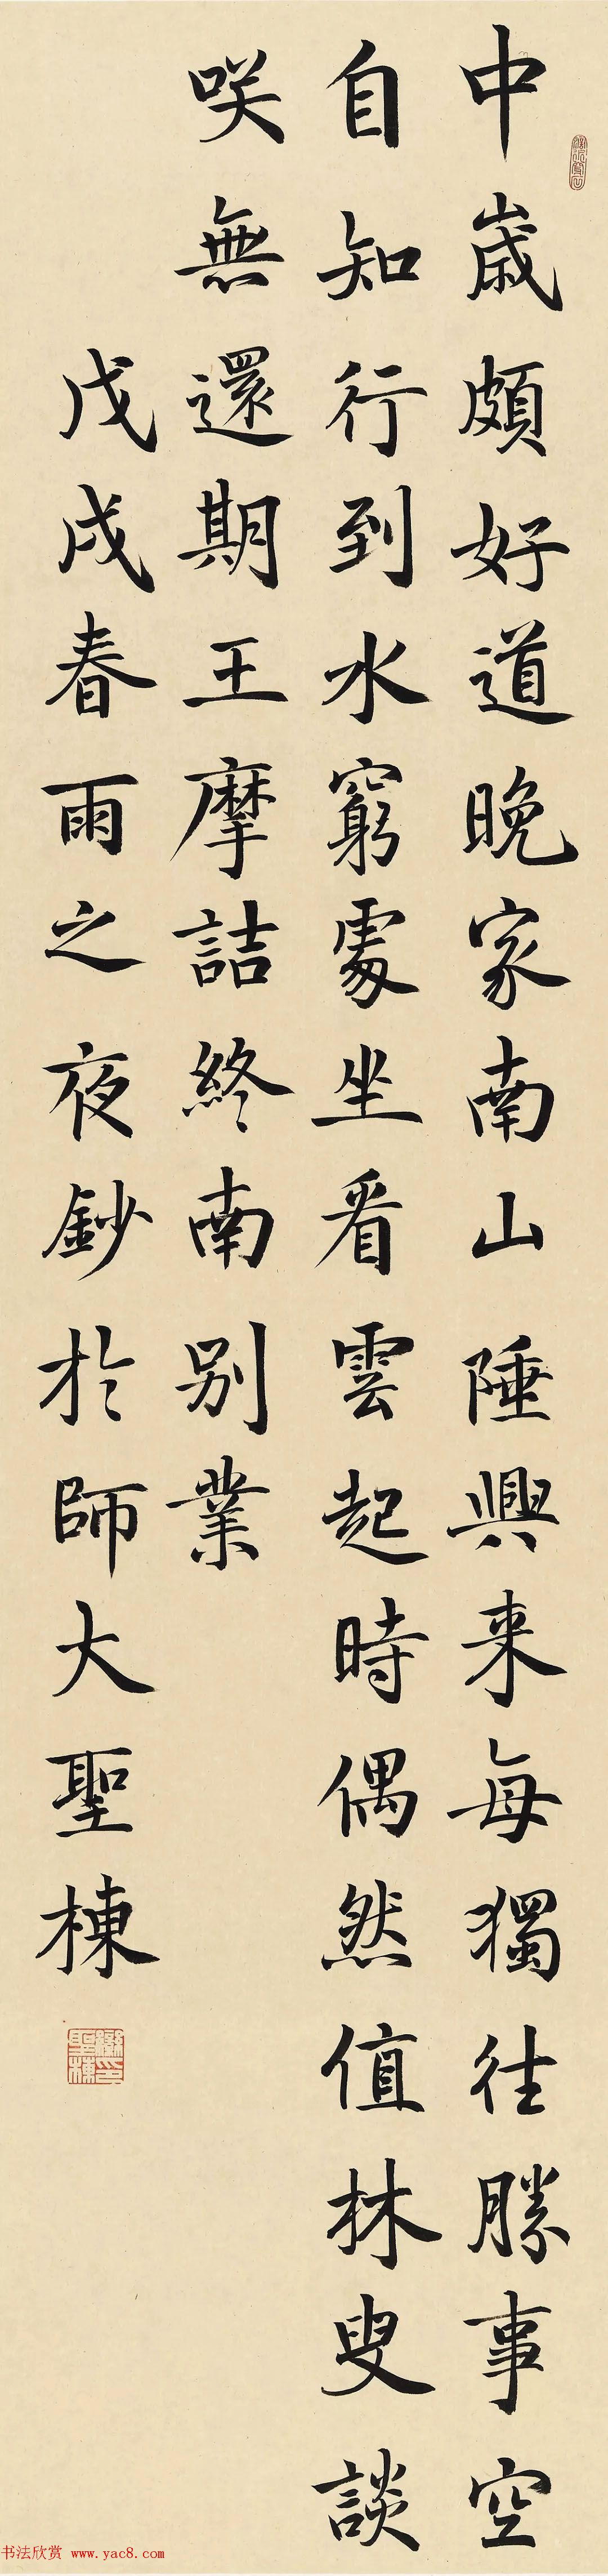 中歳頗好道晚家南山陲興来每獨往勝事空
自知行到水窮處坐看雲起時偶然值林叟談
咲無還期王摩詰終南別業
戊戌春雨之夜鈔於師大聖棟
书法欣赏 www.yac8.com